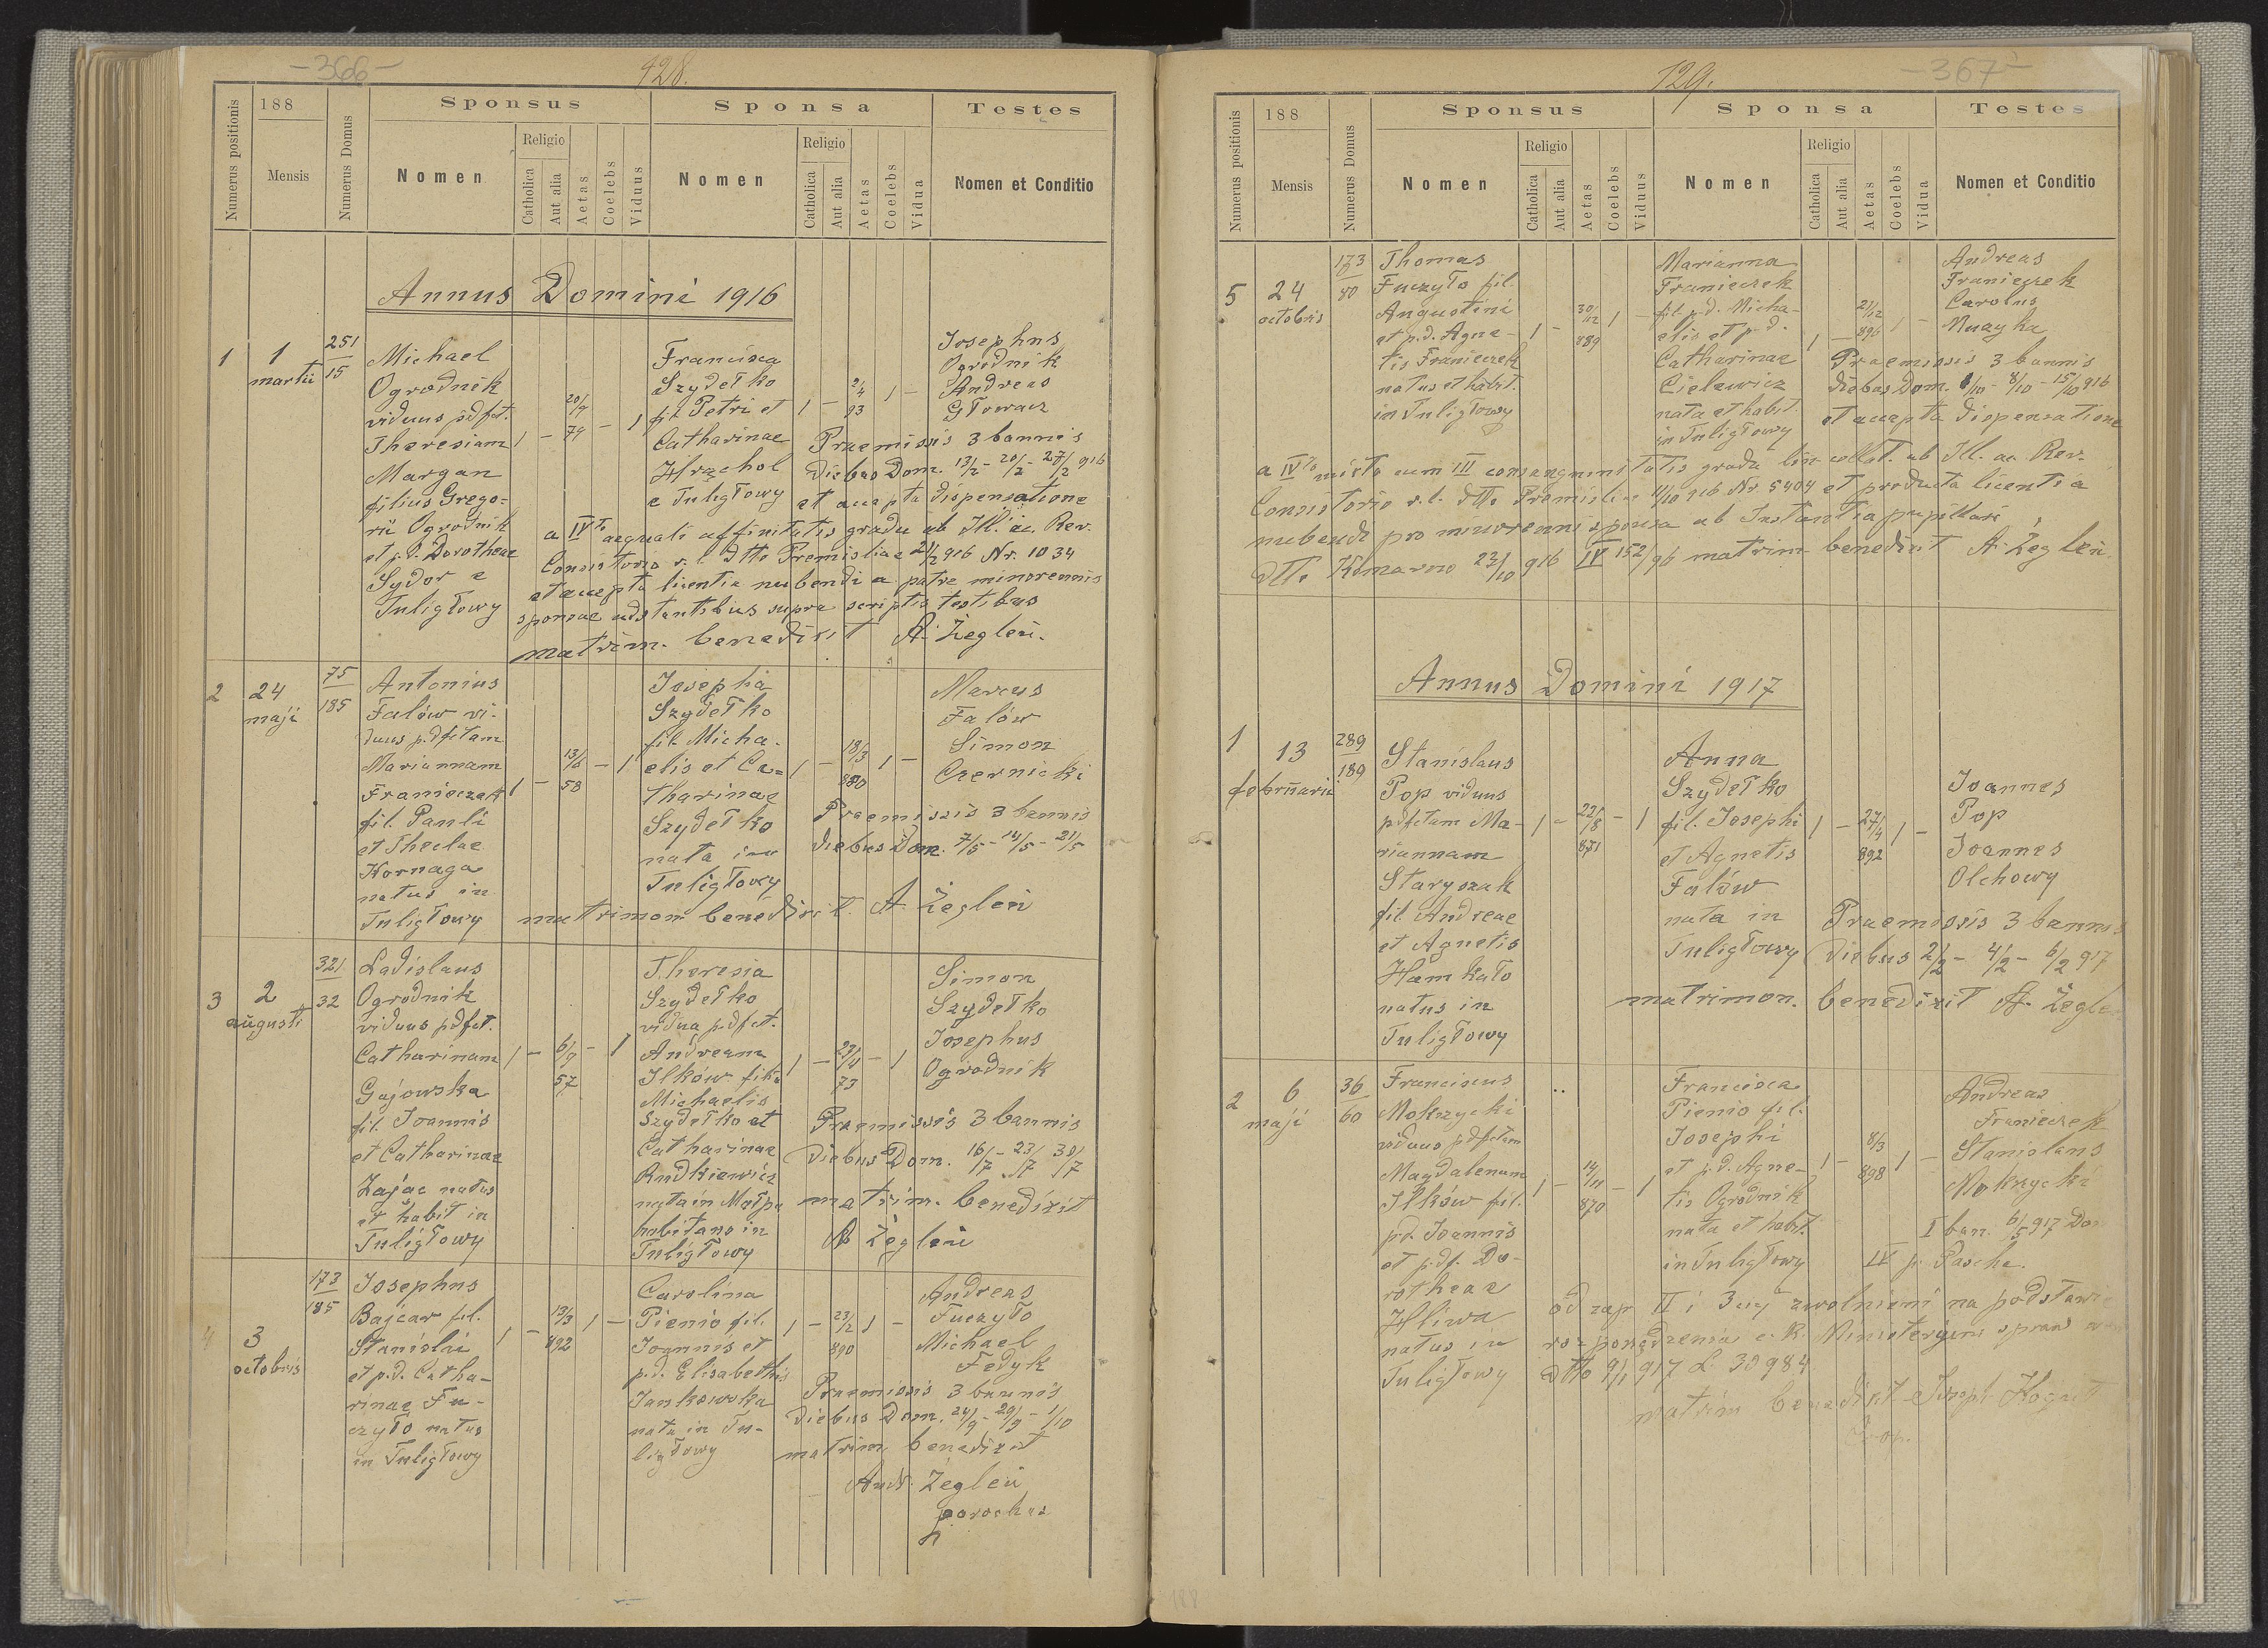 - 366 -
428.
Numerus positionis
188
Mensis
Numerus Domus
Sponsus
Nomen
Religio
Catholica
Aut alia
Aetas
Coelebs
Viduus
Sponsa
Nomen
Religio
Catholica
Aut alia
Aetas
Coelebs
Vidua
Testes
Nomen et Conditio
Annus Domini 1916
1
1
martii
251
15
Michael
Ogrodnik
viduus pdfct.
Theresiam
Margan
filius Grego-
rii Ogrodnik
et p.d. Dorotheae
Sydor e
Tuligłowy
1 - 20/9 74 - 1
Francisca
Szydełko
fil. Petri et
Catharinae
Hrzchol
e Tuligłowy
1 - 2/4 93 1 -
Josephus
Ogrodnik
Andreas
Głowacz
Praemissis 3 bannis
diebus Dom. 13/2 - 20/2 - 27/2 916
et accepta dispensatione
a IVto aequali affinitatis gradu ab Ill. ac Rev.
Consistorio r. l. dtto Premisliae 21/2 916 Nr. 1034
et accepta licentia nubendi a patre minorennis
sponsae adstantibus supra scriptis testibus
matrim. benedixit A. Żegleń.
2
24
maji
75
185
Antonius
Falów vi-
duus p.dfctam
Mariannam
Franieczek
fil. Pauli
et Theclae
Kornaga
natus in
Tuligłowy
1 - 13/6 58 - 1
Josepha
Szydełko
fil. Micha-
elis et Ca-
tharinae
Szydełko
nata in
Tuligłowy
1 - 18/3 880 1 -
Marcus
Falów
Simon
Czernicki
Praemissis 3 bannis
diebus Dom. 7/5 - 14/5 - 21/5
matrimon benedixit. A. Żegleń
3
2
augusti
321
32
Ladislaus
Ogrodnik
viduus pdfct.
Catharinam
Gajowska
fil. Joannis
et Catharinae
Zając natus
et habit in
Tuligłowy
1 - 6/9 57 - 1
Theresia
Szydełko
vidua p.dfct.
Andream
Ilków filia
Michaelis
Szydełko et
Catharinae
Rudkiewicz
nata in Małpa
habitans in
Tuligłowy
1 - 29/4 73 - 1
Simon
Szydełko
Josephus
Ogrodnik
Praemissis 3 bannis
diebus Dom. 16/7 - 23/7 30/7
matrim. benedixit
A Żegleń
4
3
octobris
173
185
Josephus
Bajcar fil.
Stanislai
et p.d. Catha-
rinae Fu-
czyło natus
in Tuligłowy
1 - 13/3 892 1 -
Carolina
Pienio fil.
Joannis et
p.d. Elisabethis
Jankowska
nata in Tu-
ligłowy
1 - 23/2 890 1 -
Andreas
Fuczyło
Michael
Fedyk
Praemissis 3 bannis
diebus Dom. 24/9 - 29/9 - 1/10
matrim benedixit
And. Żegleń
parochus
129.
- 367 -
Numerus positionis
188
Mensis
Numerus Domus
Sponsus
Nomen
Religio
Catholica
Aut alia
Aetas
Coelebs
Viduus
Sponsa
Nomen
Religio
Catholica
Aut alia
Aetas
Coelebs
Vidua
Testes
Nomen et Conditio
5
24
octobris
173
80
Thomas
Fuczyło fil.
Augustini
et p.d. Agne-
tis Franieczek
natus et habit.
in Tuligłowy
1 - 30/12 889 1 -
Marianna
Franieczek
fil. p.d. Micha-
elis et p.d.
Catharinae
Cielewicz
nata et habit.
in Tuligłowy
1 - 21/12 896 1 -
Andreas
Franieczek
Carolus
Muzyka
Praemissis 3 bannis
diebus Dom. 1/10 - 8/10 - 15/10 916
et accepta dispensatione
a IVto mixto cum III consangvinitatis gradu lin collat. ab Ill. ac Rev.
Consistorio r. l. dtto Premisliae 11/10 916 Nr 5404 et producta licentia
nubendi pro minorenni sponsa ab Instantia pupillari
dtto Komarno 23/10 916 IV 152/96 matrim benedixit A. Żegleń.
Annus Domini 1917
1
13
februarii
289
189
Stanislaus
Pop viduus
pdfctam Ma-
riannam
Staryszak
fil. Andreae
et Agnetis
Hamkało
natus in
Tuligłowy
1 - 22/8 871 - 1
Anna
Szydełko
fil. Josephi
et Agnetis
Falów
nata in
Tuligłowy
1 - 27/4 892 1 -
Joannes
Pop
Joannes
Olchowy
Praemissis 3 bannis
diebus 2/2 - 4/2 - 6/2 917
matrimon. benedixit A. Żegle
2
6
maji
36
60
Franciscus
Mokrzycki
viduus pdfctam
Magdalenam
Ilków fil.
p.d. Joannis
et p.df. Do-
rotheae
Hliwa
natus in
Tuligłowy
1 - 14/11 870 - 1
Francisca
Pienio fil.
Josephi
et p.d. Agne-
tis Ogrodnik
nata et habit.
in Tuligłowy
1 - 8/3 898 1 -
Andreas
Franieczek
Stanislaus
Mokrzycki
I ban. 6/5 917 Do
IV p. Pascha.
od zap II i 3ciej zwolnieni na podstawi
rozporządzenia c. k. Ministeryum spraw
dtto 9/1 917 L. 30984
matrim benedixit Joseph